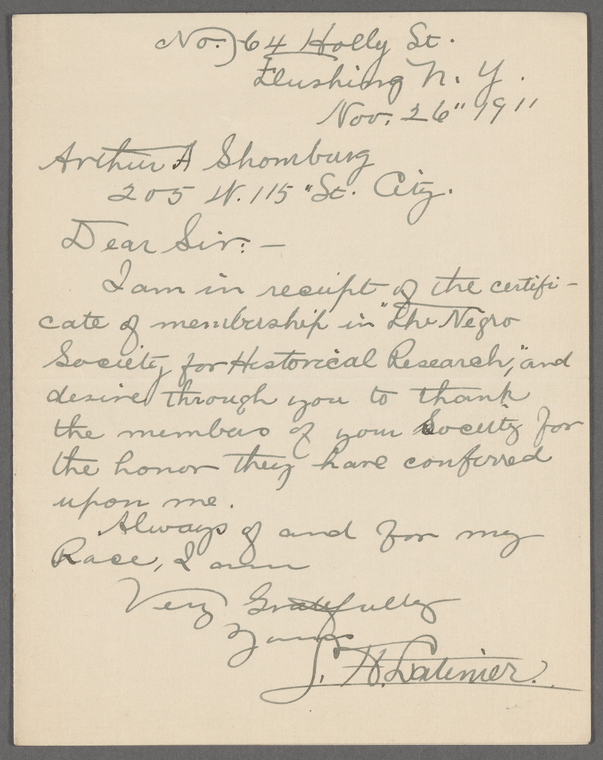 No. 64 Holly St.
Flushing N. Y.
Nov. 26" 1911
Arthur A Shomburg
205 W. 115 "St. City.
Dear Sir:—
I am in receipt of the certifi-
cate of membership in "The Negro
Society for Historical Research," and
desire through you to thank
the members of your Society for
the honor they have conferred
upon me.
Always of and for my
Race, I am
Very Gratefully
Yours
L. H. Latimer.